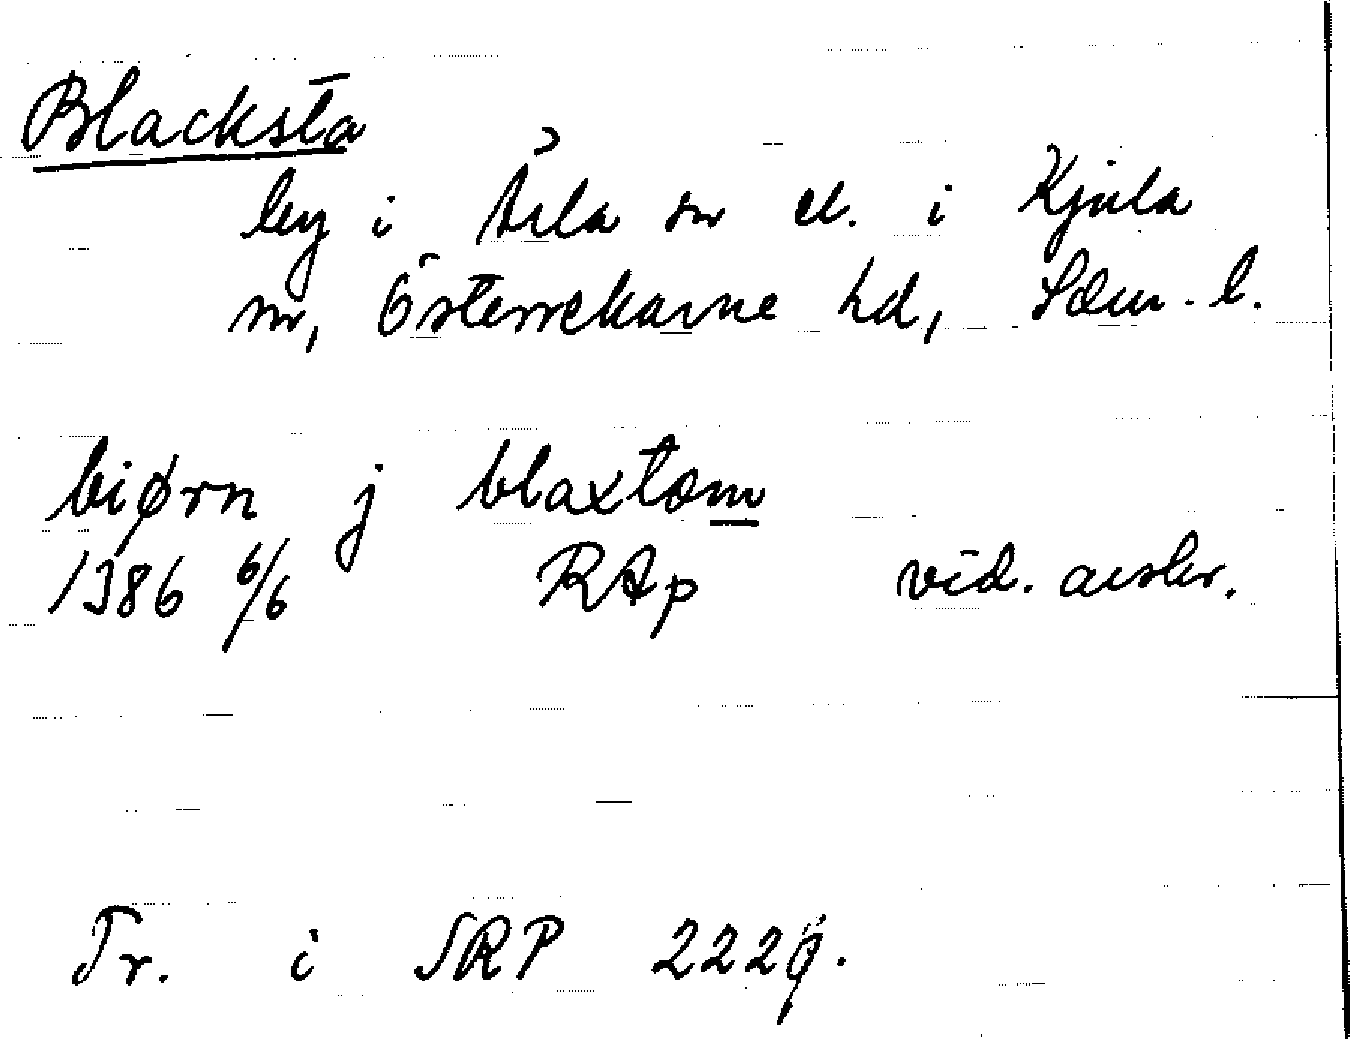 Blacksta
by i Ärla sn el. i Kjula
sn, Österrekarne hd, Söm. l.
biørn j blaxtom
1386 6/6 RAp vid. avskr.
Tr. i SRP 2229.